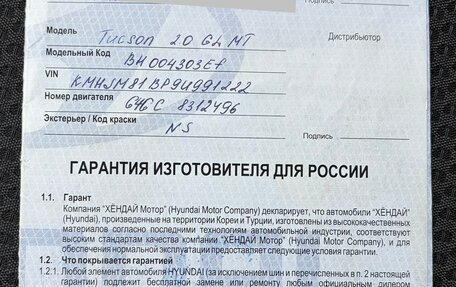 Подпись
Модель Tucson 2.0 GL MT Дистрибьютор
Модельный Код BH004303Ef
VIN KMHJM81BP9U991222
Номер двигателя G4GC 8312496
Экстерьер / Код краски NS
Подпись
ГАРАНТИЯ ИЗГОТОВИТЕЛЯ ДЛЯ РОССИИ
1.1. Гарант
Компания "ХЁНДАЙ Мотор" (Hyundai Motor Company) декларирует, что автомобили "ХЁНДАЙ"
(Hyundai), произведенные на территории Кореи и Турции, изготовлены из высококачественных
материалов согласно последним технологиям автомобильной индустрии, соответствуют
высоким стандартам качества компании "ХЁНДАЙ Мотор" (Hyundai Motor Company), и для
обеспечения нормальной эксплуатации предоставляет следующие условия гарантии.
1.2. Что покрывается гарантией
1.2.1. Любой элемент автомобиля HYUNDAI (за исключением шин и перечисленных в п. 2 настоящей
гарантии) подлежит бесплатной замене или ремонту любым официальным дилером